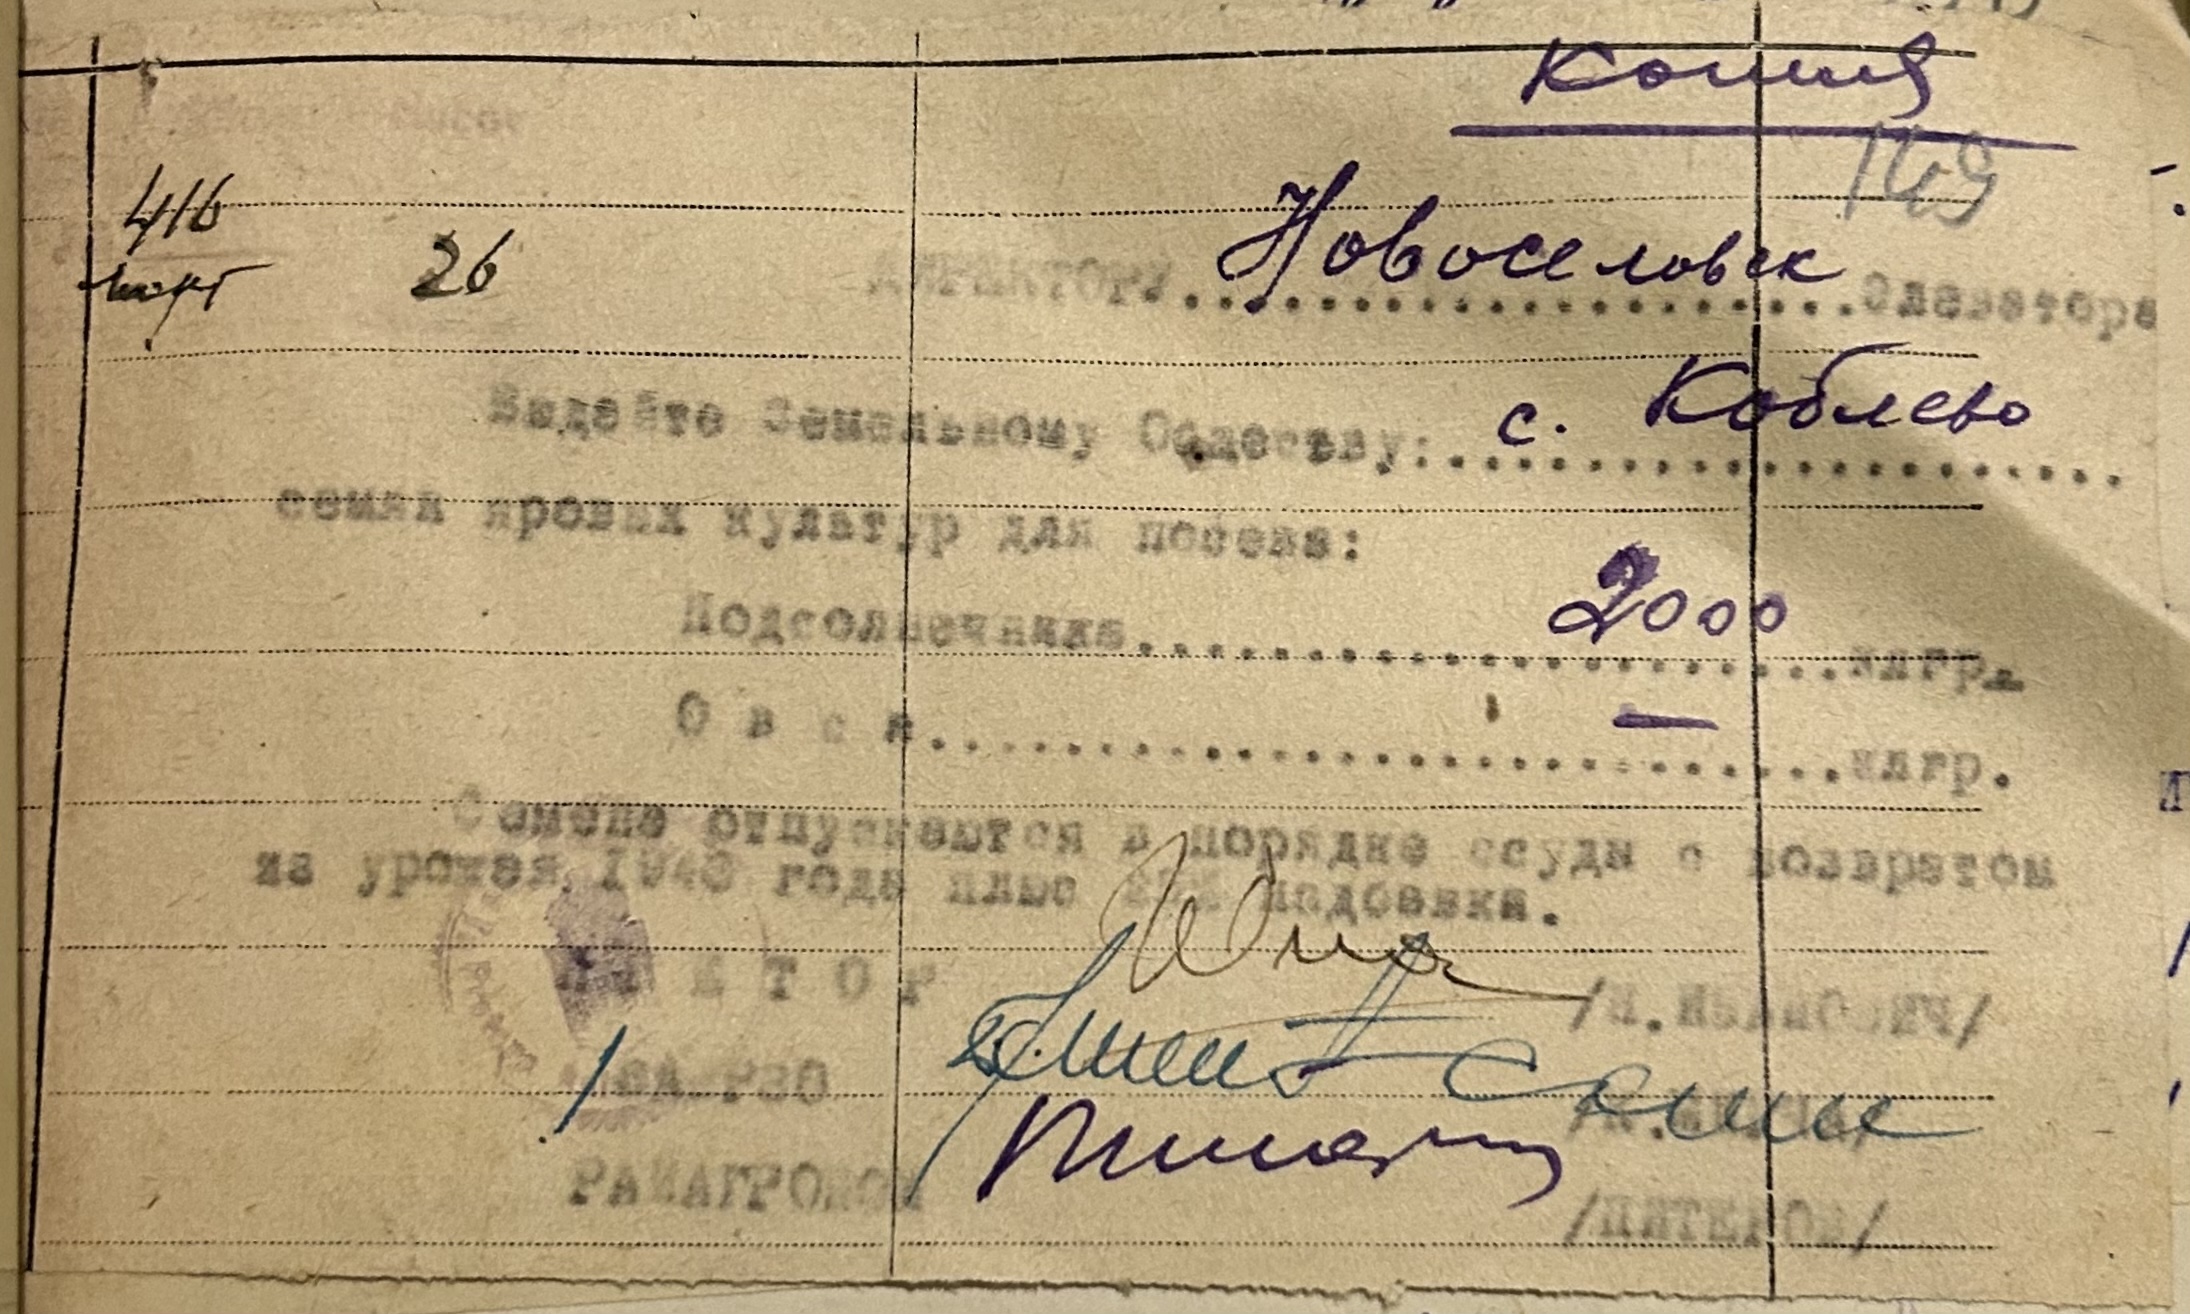 Копия
149
416
март 26
ДИРЕКТОРУ Новоселовск Элеватора
Выдайте Земельному Обществу: с. Коблево
семян яровых культур для посева:
Подсолнечника 2000 клгр.
О в с а — клгр.
Семена отпускаются в порядке ссуды с возвратом
из урожая 1943 года плюс надбавка.
П Р Е Т О Р /И.ИВАНОВИЧ/
РЗО
РАЙАГРОНОМ /ПИТЕРОВ/